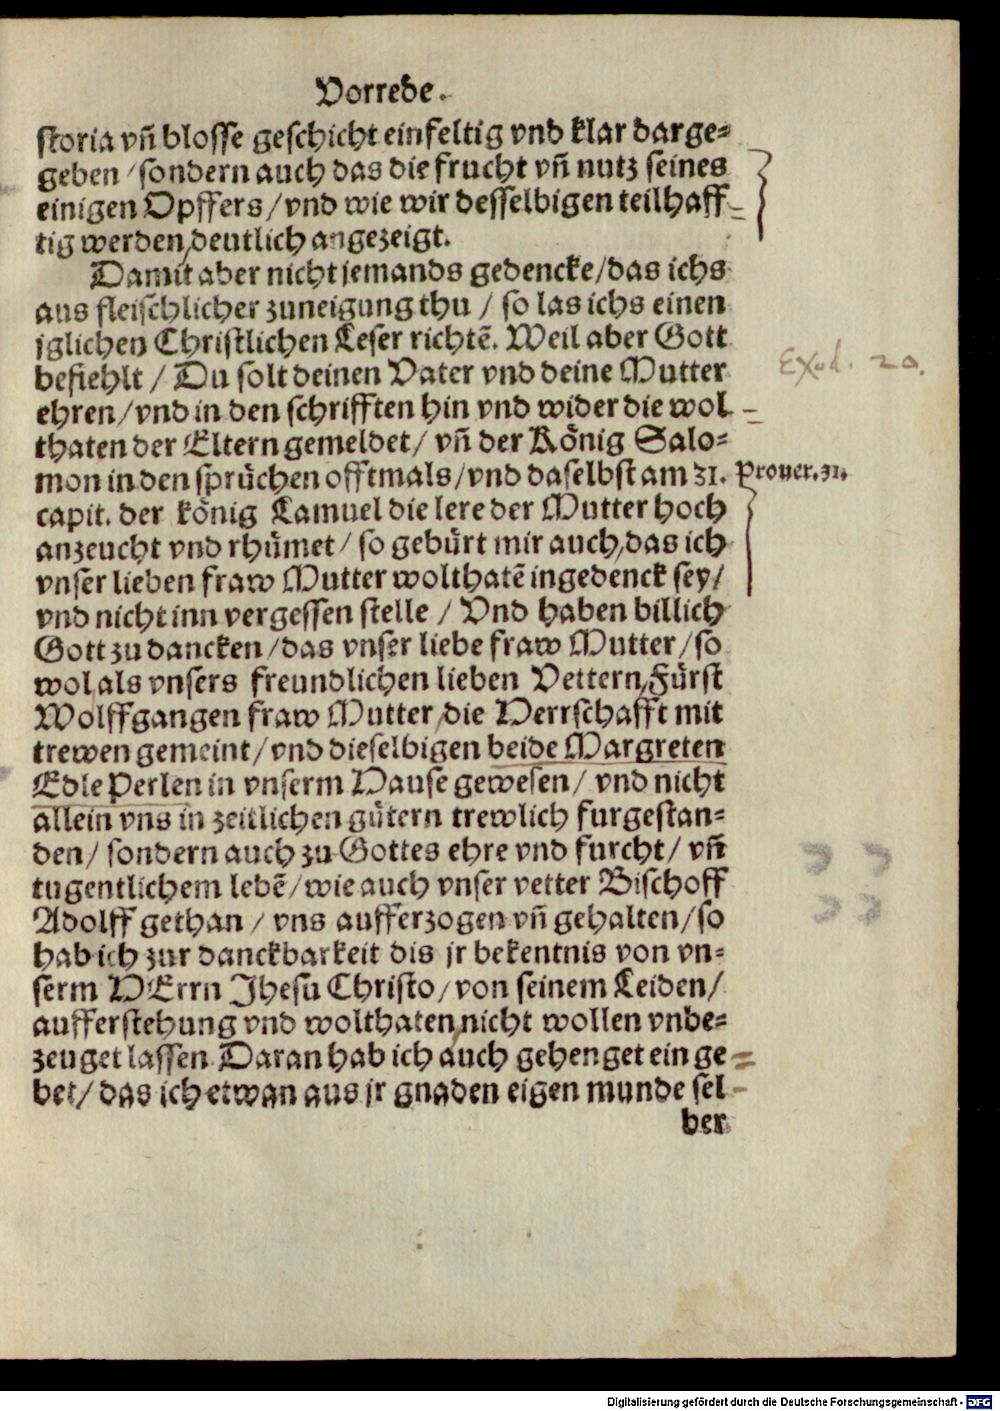 Vorrede.
storia vñ blosse geschicht einfeltig vnd klar darge⸗
geben / sondern auch das die frucht vñ nutz seines
einigen Opffers / vnd wie wir desselbigen teilhaff
tig werden / deutlich angezeigt.
Damit aber nicht jemands gedencke / das ichs
aus fleischlicher zuneigung thu / so las ichs einen
jglichen Christlichen Leser richtē. Weil aber Gott
befiehlt / Du solt deinen Vater vnd deine Mutter
Exod. 20.
ehren / vnd in den schrifften hin vnd wider die wol
thaten der Eltern gemeldet / vñ der König Salo⸗
mon in den sprüchen offtmals / vnd daselbst am 31. Prouer. 31.
capit. der könig Lamuel die lere der Mutter hoch
anzeucht vnd rhümet / so gebürt mir auch / das ich
vnser lieben fraw Mutter wolthatē ingedenck sey /
vnd nicht inn vergessen stelle / Vnd haben billich
Gott zu dancken / das vnser liebe fraw Mutter / so
wol als vnsers freundlichen lieben Vettern / Fürst
Wolffgangen fraw Mutter / die Herrschafft mit
trewen gemeint / vnd dieselbigen beide Margreten
Edle Perlen in vnserm Hause gewesen / vnd nicht
allein vns in zeitlichen gütern trewlich furgestan⸗
den / sondern auch zu Gottes ehre vnd furcht / vñ
tugentlichem lebē / wie auch vnser vetter Bischoff
Adolff gethan / vns aufferzogen vñ gehalten / so
hab ich zur danckbarkeit dis jr bekentnis von vn⸗
serm HErrn Jhesu Christo / von seinem Leiden /
aufferstehung vnd wolthaten / nicht wollen vnbe⸗
zeuget lassen. Daran hab ich auch gehenget ein ge
bet / das ich etwan aus jr gnaden eigen munde sel
ber
Digitalisierung gefördert durch die Deutsche Forschungsgemeinschaft - DFG